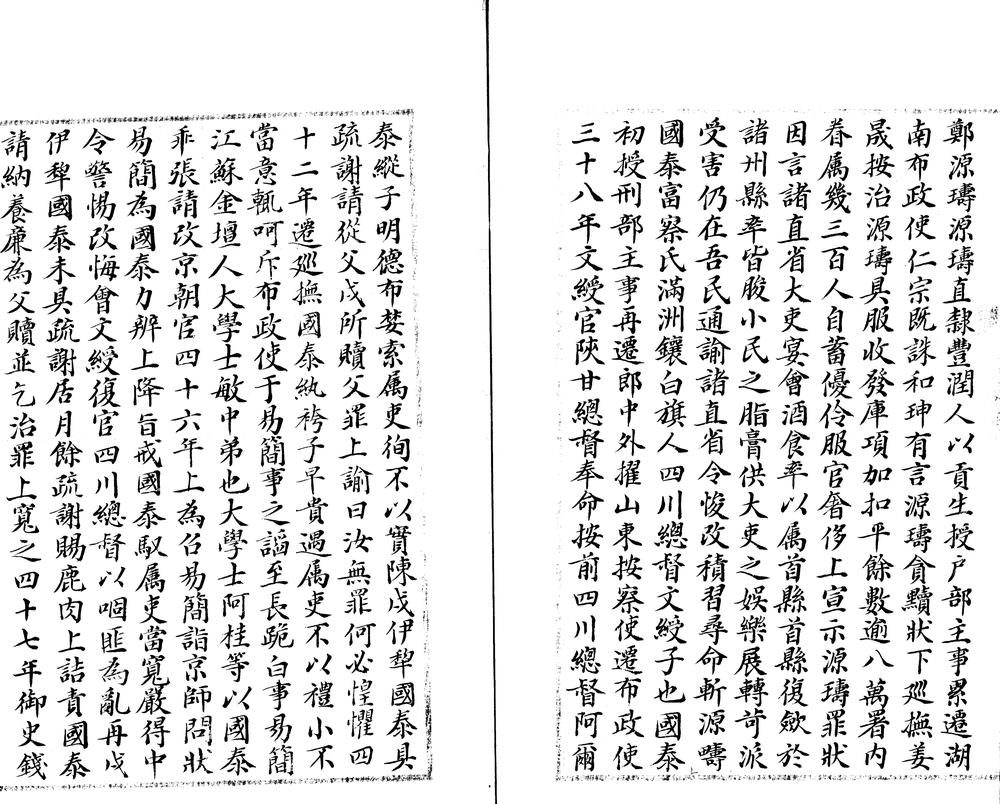 鄭源璹源璹直隸豐潤人以貢生授戶部主事累遷湖
南布政使仁宗既誅和珅有言源璹貪黷狀下巡撫姜
晟按治源璹具服收發庫項加扣平餘數逾八萬署内
眷属幾三百人自蓄優伶服官奢侈上宣示源璹罪狀
因言諸直省大吏宴會酒食率以属首縣首縣復斂於
諸州縣率皆朘小民之脂膏供大吏之娯樂展轉苛派
受害仍在吾民通諭諸直省令悛改積習尋命斬源疇
國泰富察氏滿洲鑲白旗人四川總督文綬子也國泰
初授刑部主事再遷郎中外擢山東按察使遷布政使
三十八年文綬官陜甘總督奉命按前四川總督阿爾
泰縱子明德布婪索属吏徇不以實陳戍伊犂國泰具
疏謝請從父戍所贖父罪上諭曰汝無罪何必惶懼四
十二年遷巡撫國泰紈袴子早貴遇属吏不以禮小不
當意輒呵斥布政使于易簡事之謟至長跪白事易簡
江蘇金壇人大學士敏中弟也大學士阿桂等以國泰
乖張請改京朝官四十六年上為召易簡詣京師問狀
易簡為國泰力辨上降旨戒國泰馭属吏當寬嚴得中
令警惕改悔會文綬復官四川總督以啯匪為亂再戍
伊犂國泰未具疏謝居月餘疏謝賜鹿肉上詰責國泰
請納養廉為父贖並乞治罪上寬之四十七年御史錢